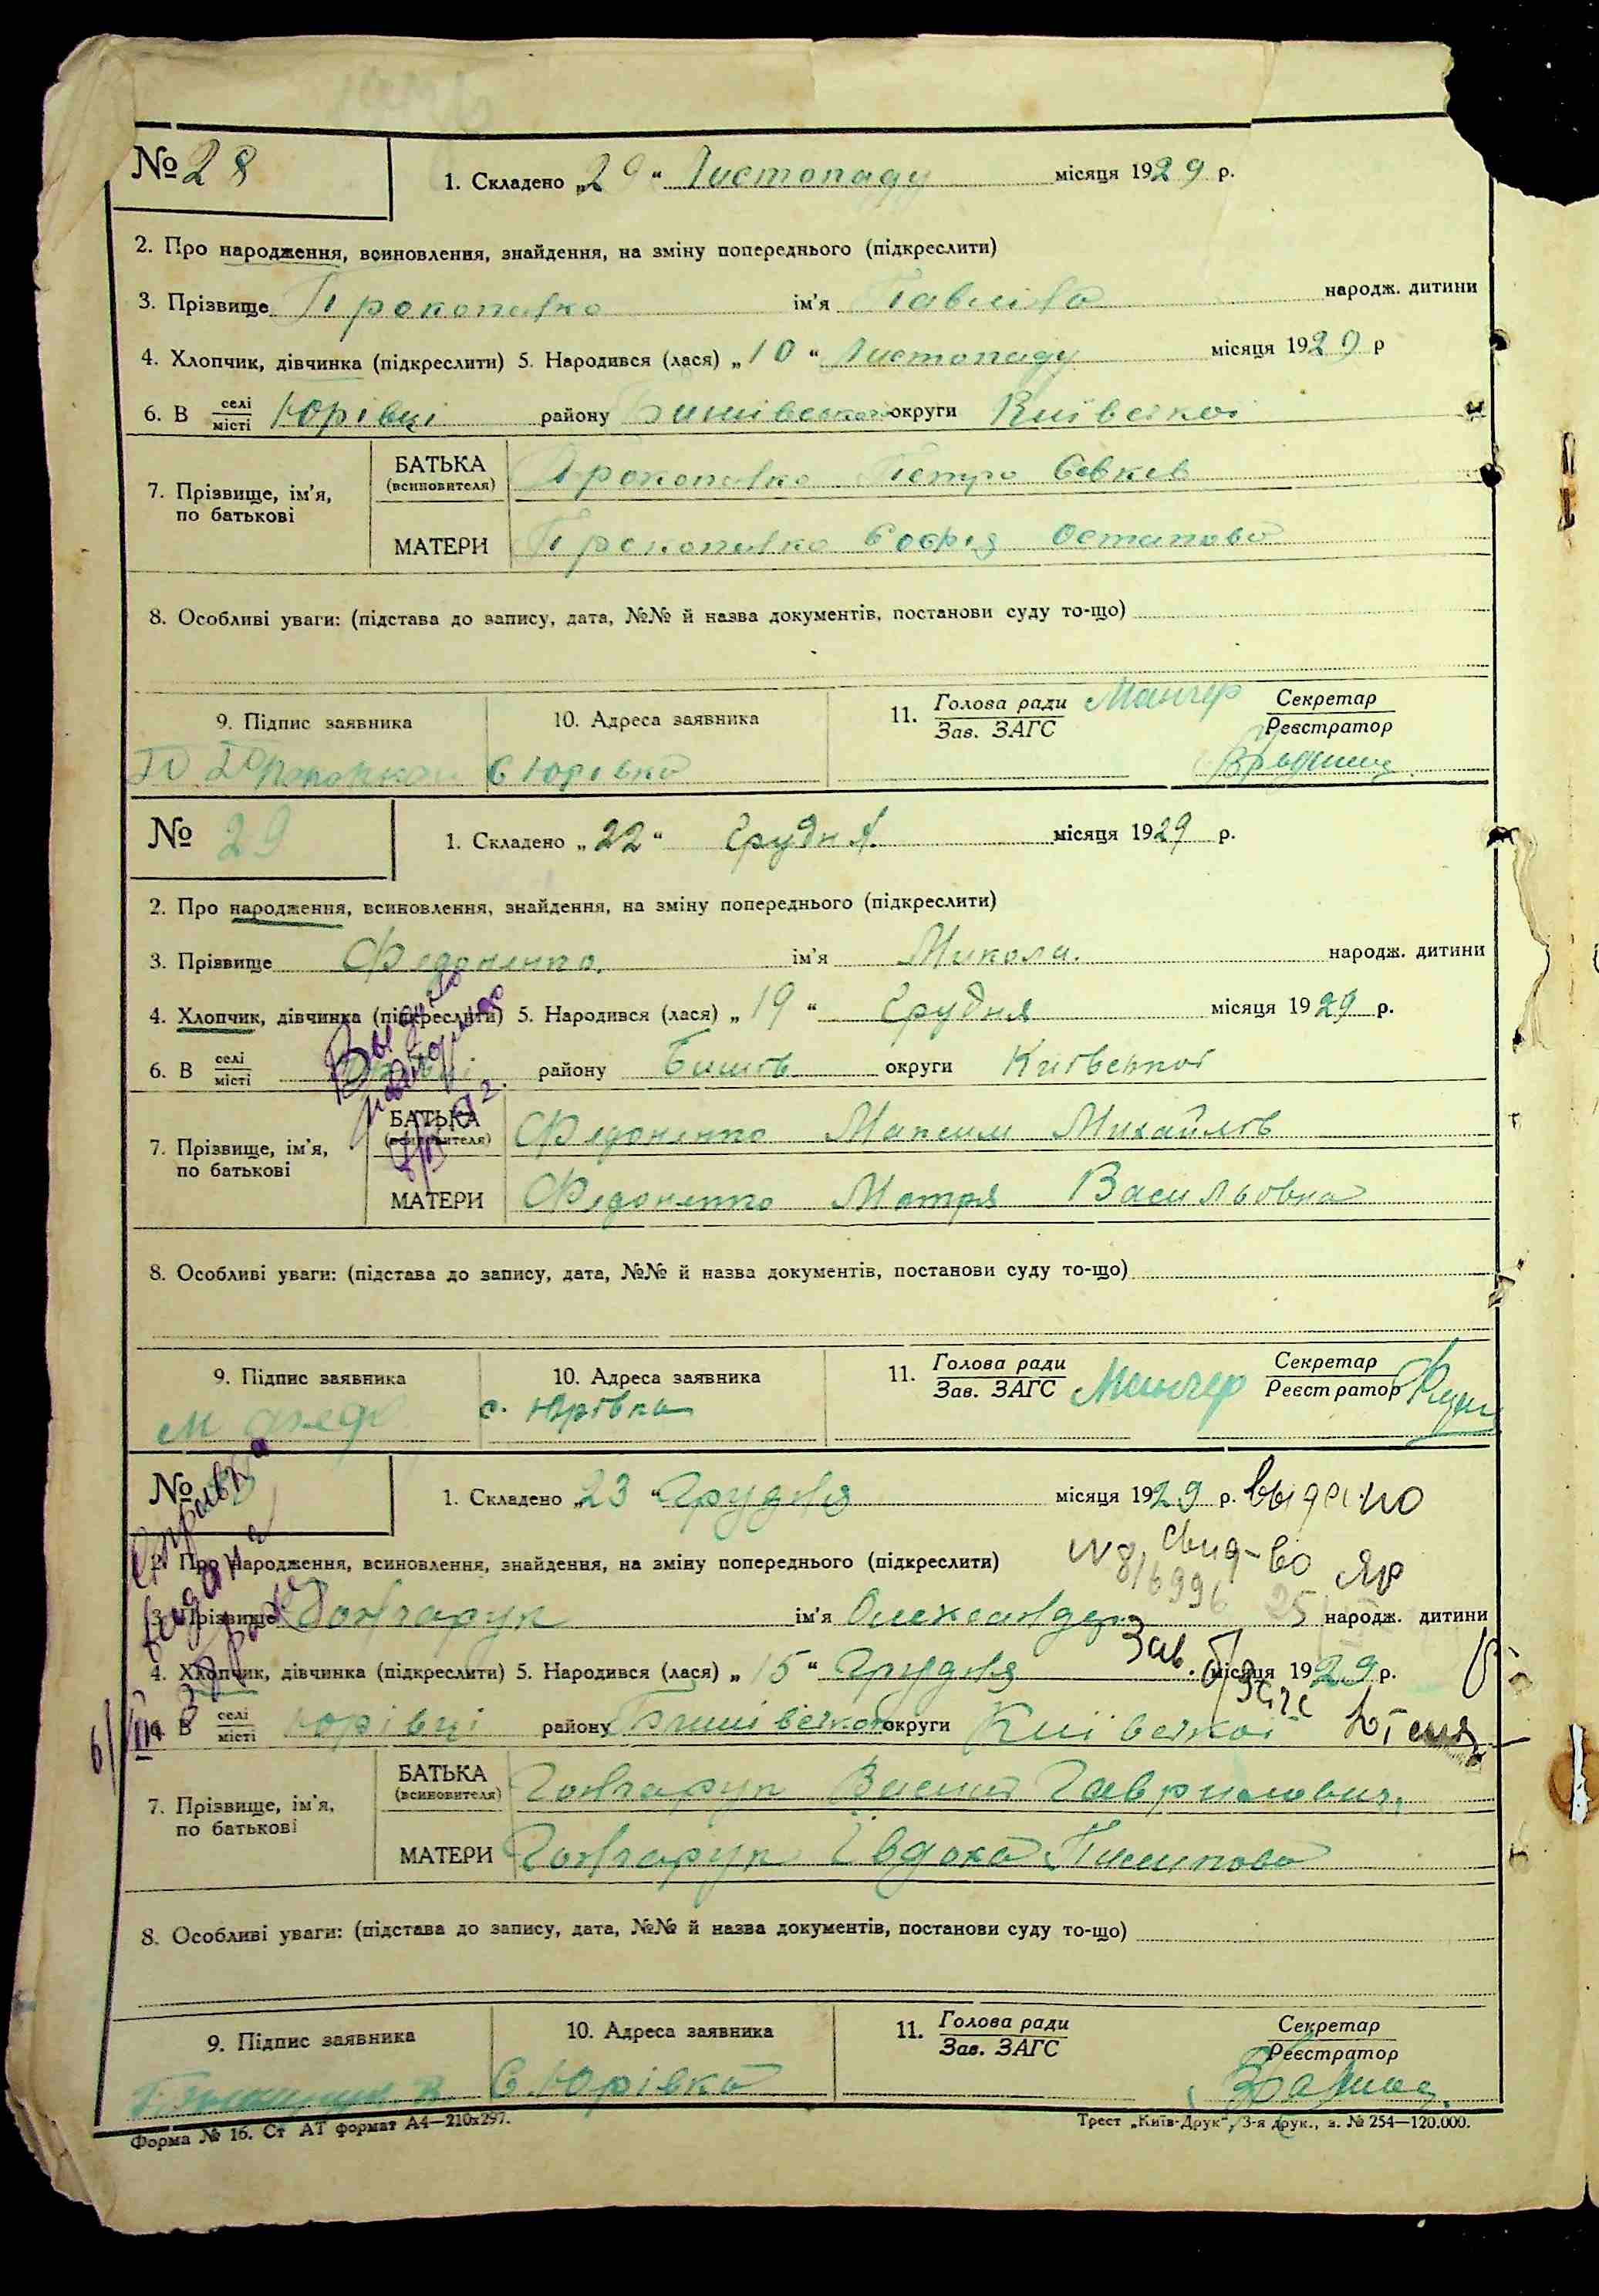 № 28
1. Складено „29“ Листопаду місяця 1929 р.
2. Про народження, всиновлення, знайдення, на зміну попереднього (підкреслити)
3. Прізвище Прокопенко ім'я Павліна народж. дитини
4. Хлопчик, дівчинка (підкреслити) 5. Народився (лася) „10“ Листопаду місяця 1929 р
6. В селі місті Юрівці району Бишівської округи Київської
7. Прізвище, ім'я, по батькові
БАТЬКА (всиновителя) Прокопенко Петро
МАТЕРИ Прокопенко Остапова
8. Особливі уваги: (підстава до запису, дата, №№ й назва документів, постанови суду то-що)
9. Підпис заявника
10. Адреса заявника С Юрівка
11. Голова ради Зав. ЗАГС
Секретар Реєстратор
№ 29
1. Складено „22“ Грудня. місяця 1929 р.
2. Про народження, всиновлення, знайдення, на зміну попереднього (підкреслити)
3. Прізвище Федоненко. ім'я Микола. народж. дитини
4. Хлопчик, дівчинка (підкреслити) 5. Народився (лася) „19“ Грудня місяця 1929 р.
6. В селі місті району Бишів округи Київської
7. Прізвище, ім'я, по батькові
БАТЬКА (всиновителя) Федоненко Максим Михайлів
МАТЕРИ Федоненко Мотря Васильовна
8. Особливі уваги: (підстава до запису, дата, №№ й назва документів, постанови суду то-що)
9. Підпис заявника
10. Адреса заявника с. Юрівка
11. Голова ради Зав. ЗАГС
Секретар Реєстратор
№
1. Складено „23“ Грудня місяця 1929 р. выдано
свид-во
2. Про народження, всиновлення, знайдення, на зміну попереднього (підкреслити)
3. Прізвище Гончарук ім'я Олександр народж. дитини
4. Хлопчик, дівчинка (підкреслити) 5. Народився (лася) „15“ Грудня місяця 1929 р.
Зав. б/загс
6. В селі місті Юрівці району Бишівської округи Київської
7. Прізвище, ім'я, по батькові
БАТЬКА (всиновителя) Гончарук Василь Гаврилович.
МАТЕРИ Гончарук Євдоха Пилипова
8. Особливі уваги: (підстава до запису, дата, №№ й назва документів, постанови суду то-що)
9. Підпис заявника
10. Адреса заявника С. Юрівка
11. Голова ради Зав. ЗАГС
Секретар Реєстратор
Форма № 16. Ст АТ формат А4—210х297.
Трест „Київ-Друк“, 3-я друк., з. № 254—120.000.